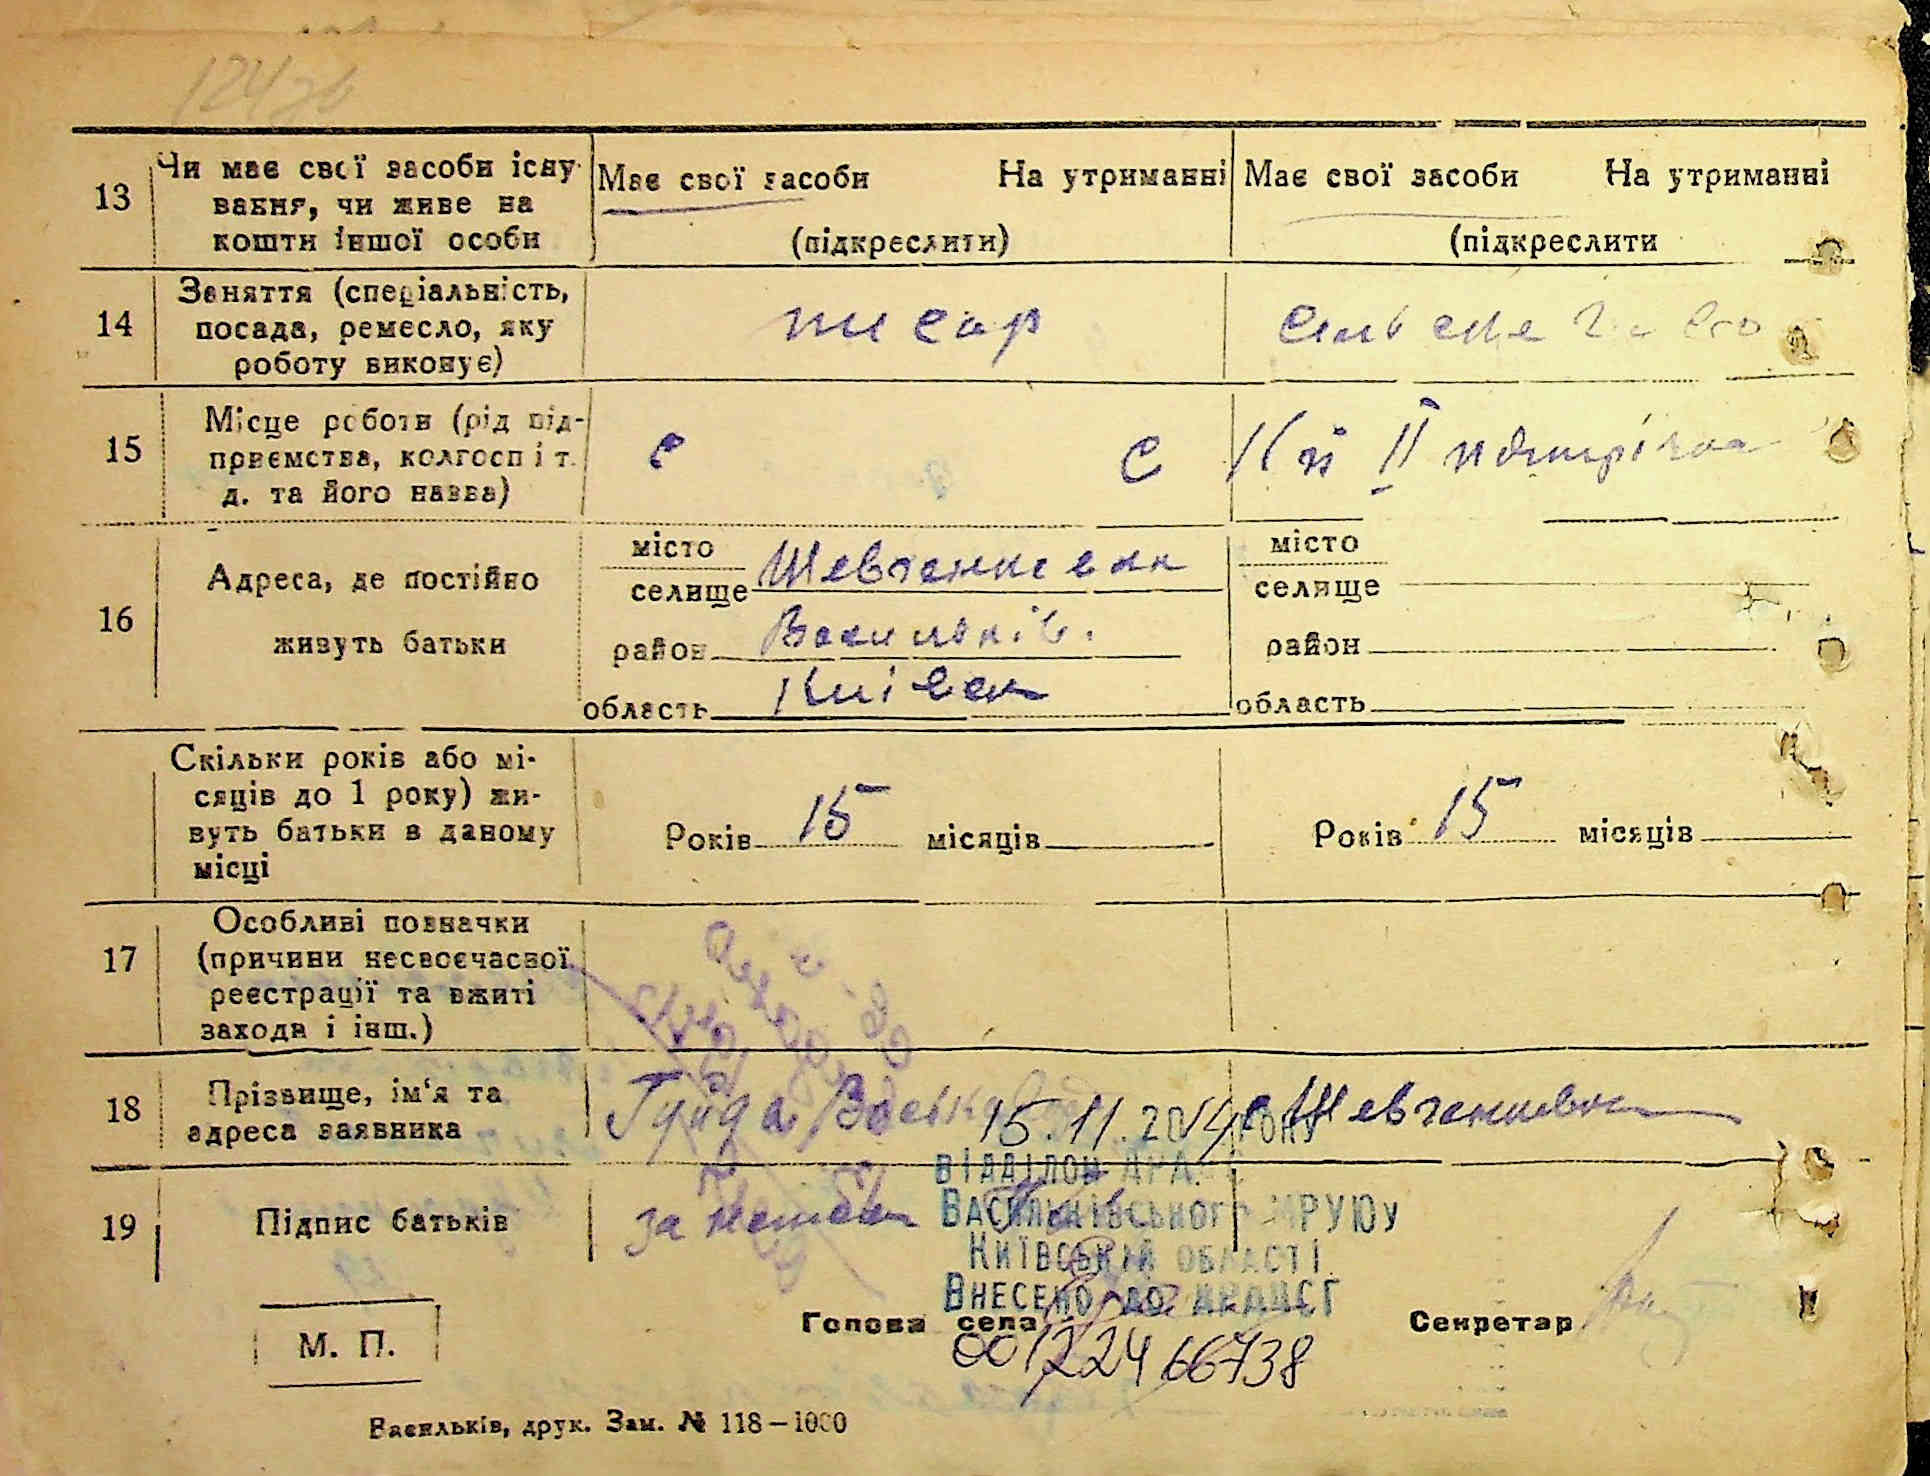 13
Чи має свої засоби існу-
вання, чи живе на
кошти іншої особи
Має свої засоби На утриманні
(підкреслити)
Має свої засоби На утриманні
(підкреслити
14
Заняття (спеціальність,
посада, ремесло, яку
роботу виконує)
писар
15
Місце роботи (рід під-
приємства, колгосп і т.
д. та його назва)
16
Адреса, де постійно
живуть батьки
місто
селище Шевченківка
район Васильків.
область Київськ
місто
селище
район
область
Скільки років або мі-
сяців до 1 року) жи-
вуть батьки в даному
місці
Років 15 місяців
Років 15 місяців
17
Особливі позначки
(причини несвоєчасної
реєстрації та вжиті
заходи і інш.)
18
Прізвище, ім'я та
адреса заявника
Гуйда
с Шевченківка
15.11.2014 року
Відділом ДРАЦС
Васильківського МРУЮ у
Київській області
Внесено до ДРАЦСГ
00122466738
19
Підпис батьків
за
М. П.
Голова села
Секретар
Васильків, друк. Зам. № 118–1000